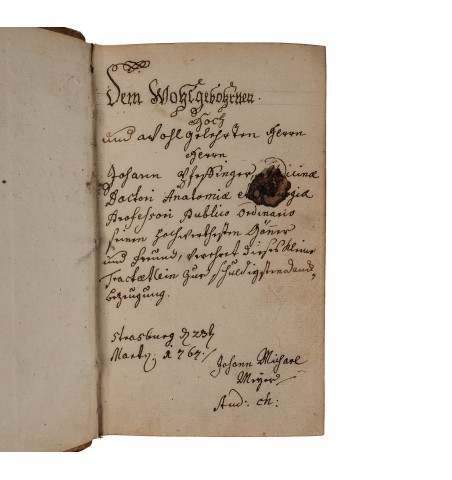 Dem Wohlgebohrnen.
Hoch
und wohl gelehrten Herrn
Herrn
Johann Pfeffinger,
Doctori Anatomiæ et
Professori Publico Ordinario
seinem hochwerthesten Gönner
und Freund, verehret dieses kleine
Tractætlein zur schuldigsten danks,
bezeugung.
Strasburg d 23t
Marty: a 767:/
Johann Michael
Meyer
And: ch: